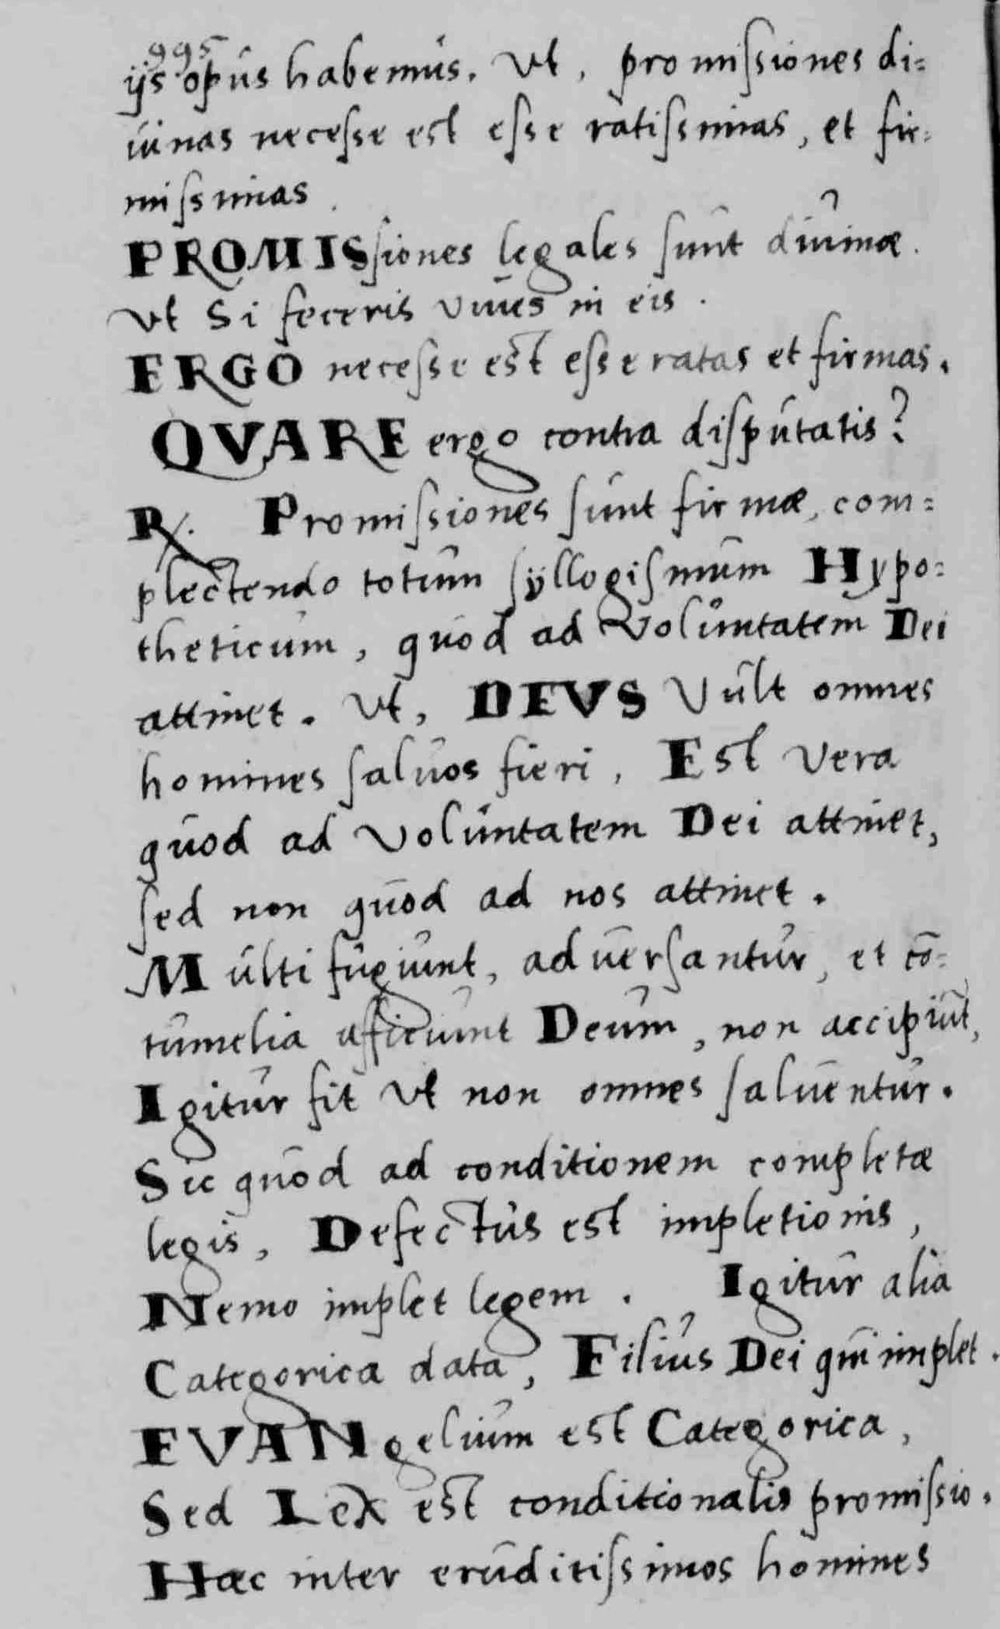 995
ijs opus habemus. Vt, promissiones di=
uinas necesse est esse ratissimas, et fir=
missimas.
PROMISsiones legales sunt diuinæ.
Vt Si feceris viues in eis.
ERGO necesse est esse ratas et firmas.
QVARE ergo contra disputatis?
R. Promissiones sunt firmæ, com=
plectendo totum syllogismum Hypo=
theticum, quod ad Voluntatem Dei
attinet. Vt, DEVS Vult omnes
homines saluos fieri, Est Vera
quod ad Voluntatem Dei attinet,
sed non quod ad nos attinet.
Multi fugiunt, aduersantur, et cō=
tumelia afficiunt Deum, non accipiūt,
Igitur fit Vt non omnes saluentur.
Sic quod ad conditionem completæ
legis, Defectus est impletionis,
Nemo implet legem. Igitur alia
Categorica data, Filius Dei qui implet.
EVANgelium est Categorica,
Sed Lex est conditionalis promissio.
Hæc inter eruditissimos homines